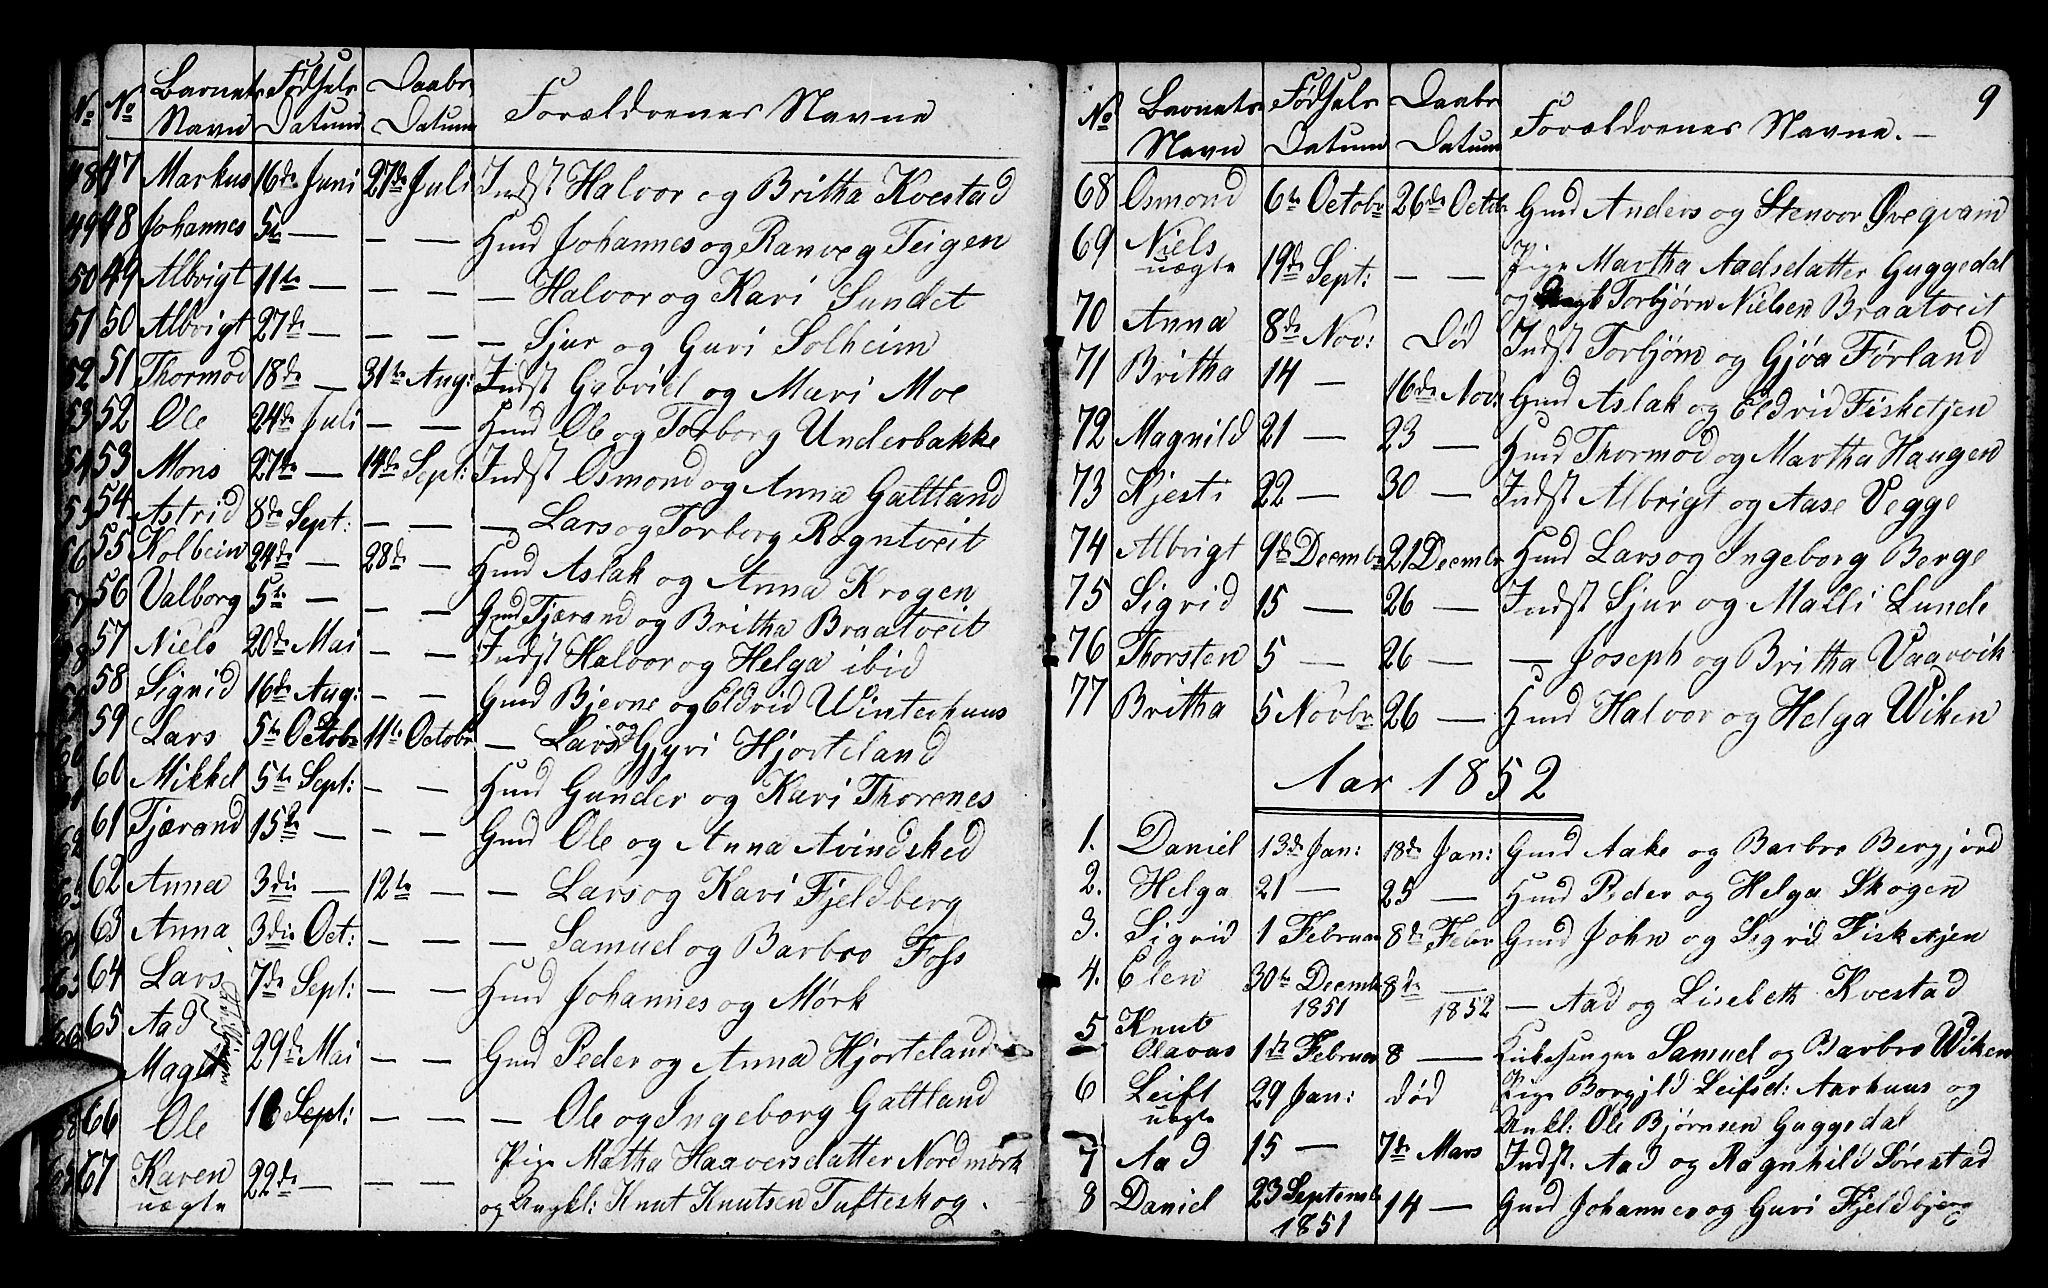 No No Barnets Fødsels Daabs Forældrenes Navne
Navn Datum Datum
48 47 Markus 16de Juni 27de Juli Indst Halvor og Britha Kvestad
49 48 Johannes 5te — — — Gmd Johannes og Ranveg Teigen
50 49 Albrigt 11te — — — — Halvor og Kari Sundet
51 50 Albrigt 27de — — — — Sjur og Guri Solheim
52 51 Thormod 18de — 31te Aug: Indst Gabriel og Mari Moe
53 52 Ole 24de Juli — — Hmd Ole og Torborg Underbakke
54 53 Mons 27de — 14de Sept: Indst Osmond og Anna Galtland
55 54 Astrid 8de Sept: — — — Lars og Torborg Rogntveit
56 55 Kolbein 24de — 28de — Hmd Aslak og Anna Krogen
57 56 Valborg 5te — — — Gmd Tjærand og Britha Braatveit
58 57 Niels 20de Mai — — Indst Halvor og Helga ibid
59 58 Sigrid 16de Aug: — — Gmd Bjerne og Eldrid Winterhuus
60 59 Lars 5te Octobr 11te Octobr — Lars og Gjyri Hjorteland
61 60 Mikkel 5te Sept: — — Hmd Gunder og Kari Thorenes
62 61 Tjærand 15de — — — Gmd Ole og Anna Avindsked
63 62 Anna 3die — 12te — — Lars og Kari Fjeldberg
64 63 Anna 3die Oct: — — — Samuel og Barbro Foss
65 64 Lars 7de Sept: — — Hmd Johannes og Mørk
66 65 Aad
Magla 29de Mai — — Gmd Peder og Anna Hjorteland
68 66 Ole 10 Sept: — — — Ole og Ingeborg Galtland
67 Karen 22de — — — Pige Matha Haaversdatter Nordmørk
uægte og Ungkl: Knut Knutsen Tufteskog.
9
No Barnets Fødsels Daabs Forældrenes Navne. —
Navn Datum Datum
68 Osmond 6te Octobr 26de Octbr Gmd Anders og Stenvor Øveqvam
69 Niels 19de Sept: — — Pige Martha Aadsdatter Guggedal
uægte og Ungk Torbjørn Nielsen Braatveit
70 Anna 8de Nov: Død Indst Torbjørn og Gjøa Førland
71 Britha 14 — 16de Nov: Gmd Aslak og Eldrid Fisketjen
72 Magnild 21 — 23 — Hmd Thormod og Martha Haugen
73 Kjesti 22 — 30 — Indst Albrigt og Aase Vegge
74 Albrigt 9de Decmbr 21 Decmbr Hmd Lars og Ingeborg Berge
75 Sigrid 15 — 26 — Indst Sjur og Malli Lunde
76 Thorsten 5 — 26 — — Joseph og Britha Vaarvik
77 Britha 5 Novbr 26 — Hmd Halvor og Helga Wiken
Aar 1852
1. Daniel 13de Jan: 18de Jan: Gmd Aake og Barbro Bergjord
2. Helga 21 — 25 — Hmd Peder og Helga Skogen
3. Sigrid 1 Februar 8de Febr Gmd John og Sigrid Fisketjen
4. Elen 30te Decmbr 8de —
1851 1852 — Aad og Lisebeth Kvestad
5 Knut
Olavus 1ste Februar 8 — Kirkesanger Samuel og Barbro Wiken
6 Leift 29 Jan: død Pige Borgjld Leifsd: Aarhuus og
uægte Unkl: Ole Bjørnsen Guggedal
7 Aad 15 — 7de Mars Indst. Aad og Ragnhild Sørestad
8 Daniel 23 Septembr 14 — Gmd Johannes og Guri Fjeldbjerg
1851